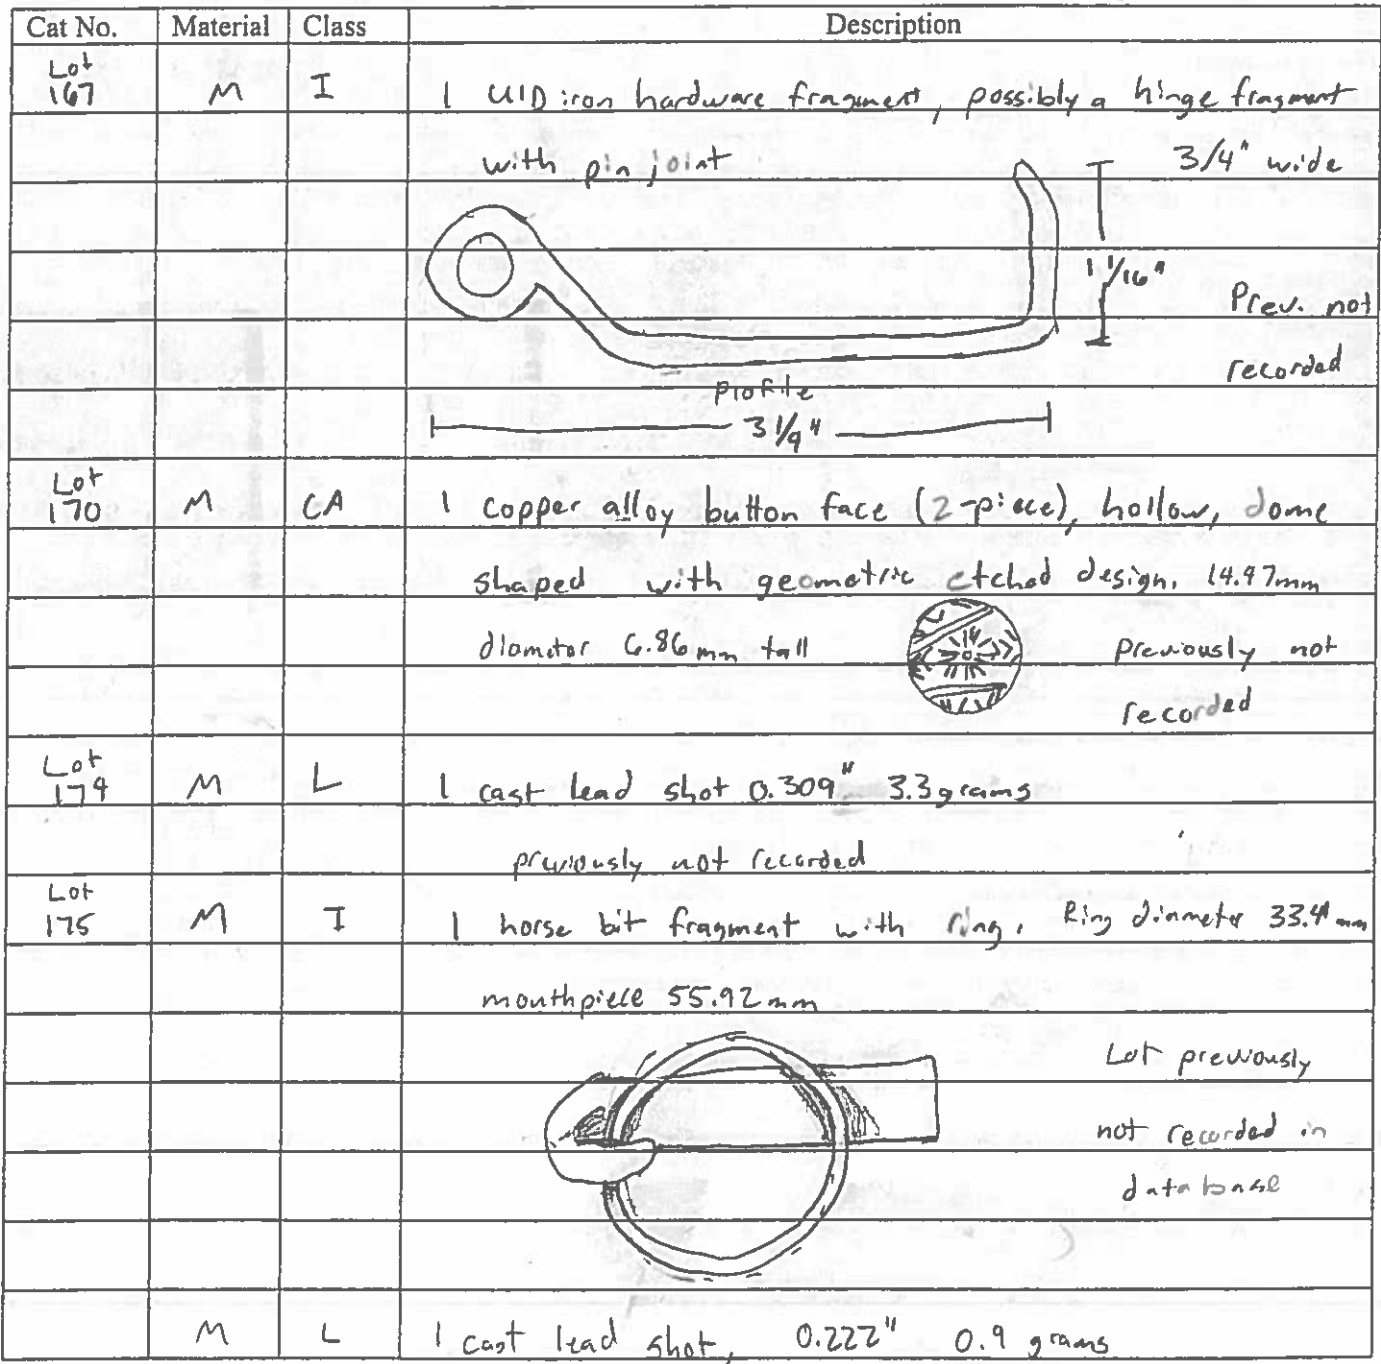 Cat No. Material Class Description
Lot
167 M I 1 UID iron hardware fragment, possibly a hinge fragment
with pin joint 3/4" wide
1 1/16"
Prev. not
recorded
Profile
3 1/4"
Lot
170 M CA 1 copper alloy button face (2-piece), hollow, dome
shaped with geometric etched design. 14.97mm
diameter 6.86mm tall previously not
recorded
Lot
174 M L 1 cast lead shot 0.309" 3.3 grams
previously not recorded
Lot
175 M I 1 horse bit fragment with ring. Ring diameter 33.41mm
mouthpiece 55.92mm
Lot previously
not recorded in
database
M L 1 cast lead shot, 0.222" 0.9 grams